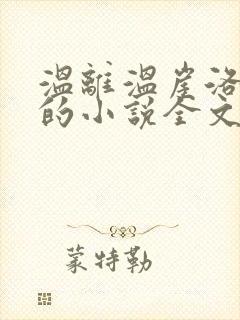 温離温崖洛
的小説全文
蒙特勒